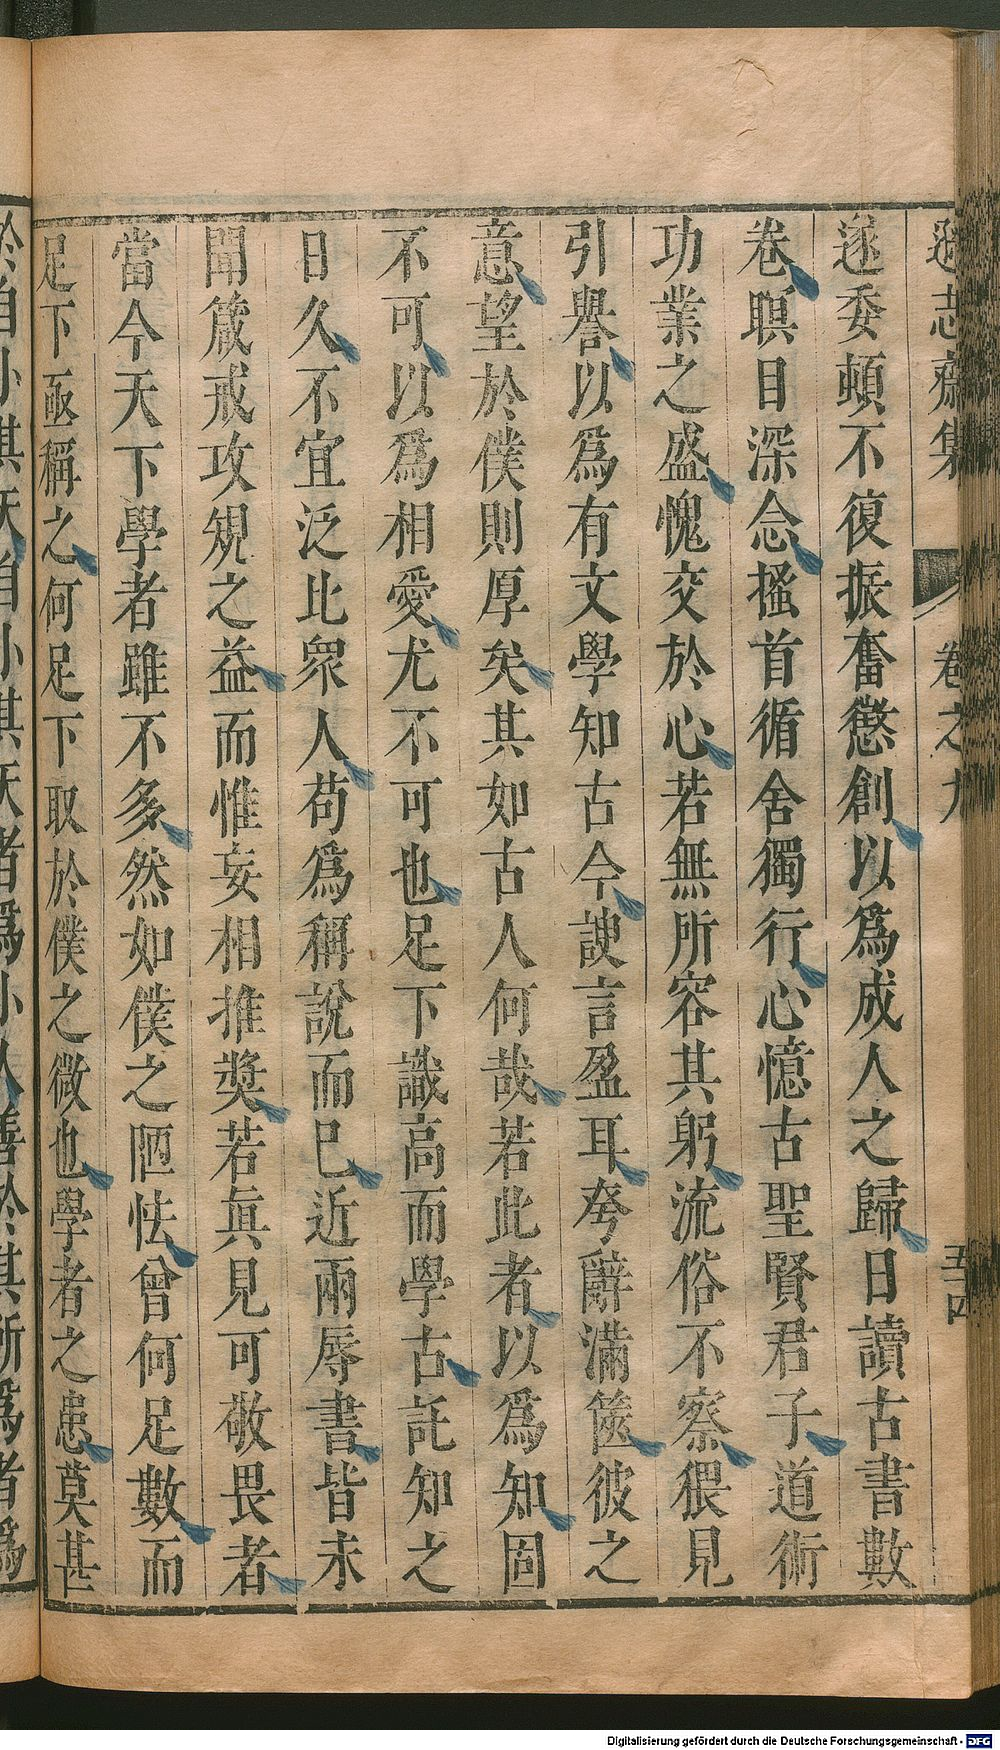 遜志齋集 卷之九 五十四
遂委頓不復振奮懲創以爲成人之歸日讀古書數
卷瞑目深念搔首循舍獨行心憶古聖賢君子道術
功業之盛愧交於心若無所容其躬流俗不察猥見
引譽以爲有文學知古今諛言盈耳夸辭滿篋彼之
意望於僕則厚矣其如古人何哉若此者以爲知固
不可以爲相愛尤不可也足下識高而學古託知之
日久不宜泛比眾人苟爲稱說而已近兩辱書皆未
聞箴戒攻規之益而惟妄相推獎若眞見可敬畏者
當今天下學者雖不多然如僕之陋怯曾何足數而
足下亟稱之何足下取於僕之微也學者之患莫甚
於自小棋天自小其天者爲小人善於其所爲者爲
Digitalisierung gefördert durch die Deutsche Forschungsgemeinschaft - DFG